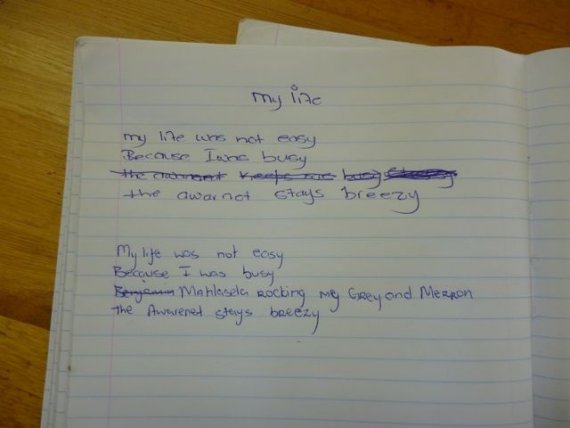 my life
my life was not easy
Because I was busy
the awarnot stays breezy
My life was not easy
Because I was busy
Benjamin Mahlasela Rocking my Grey and Merron
The Awarenet stays breezy